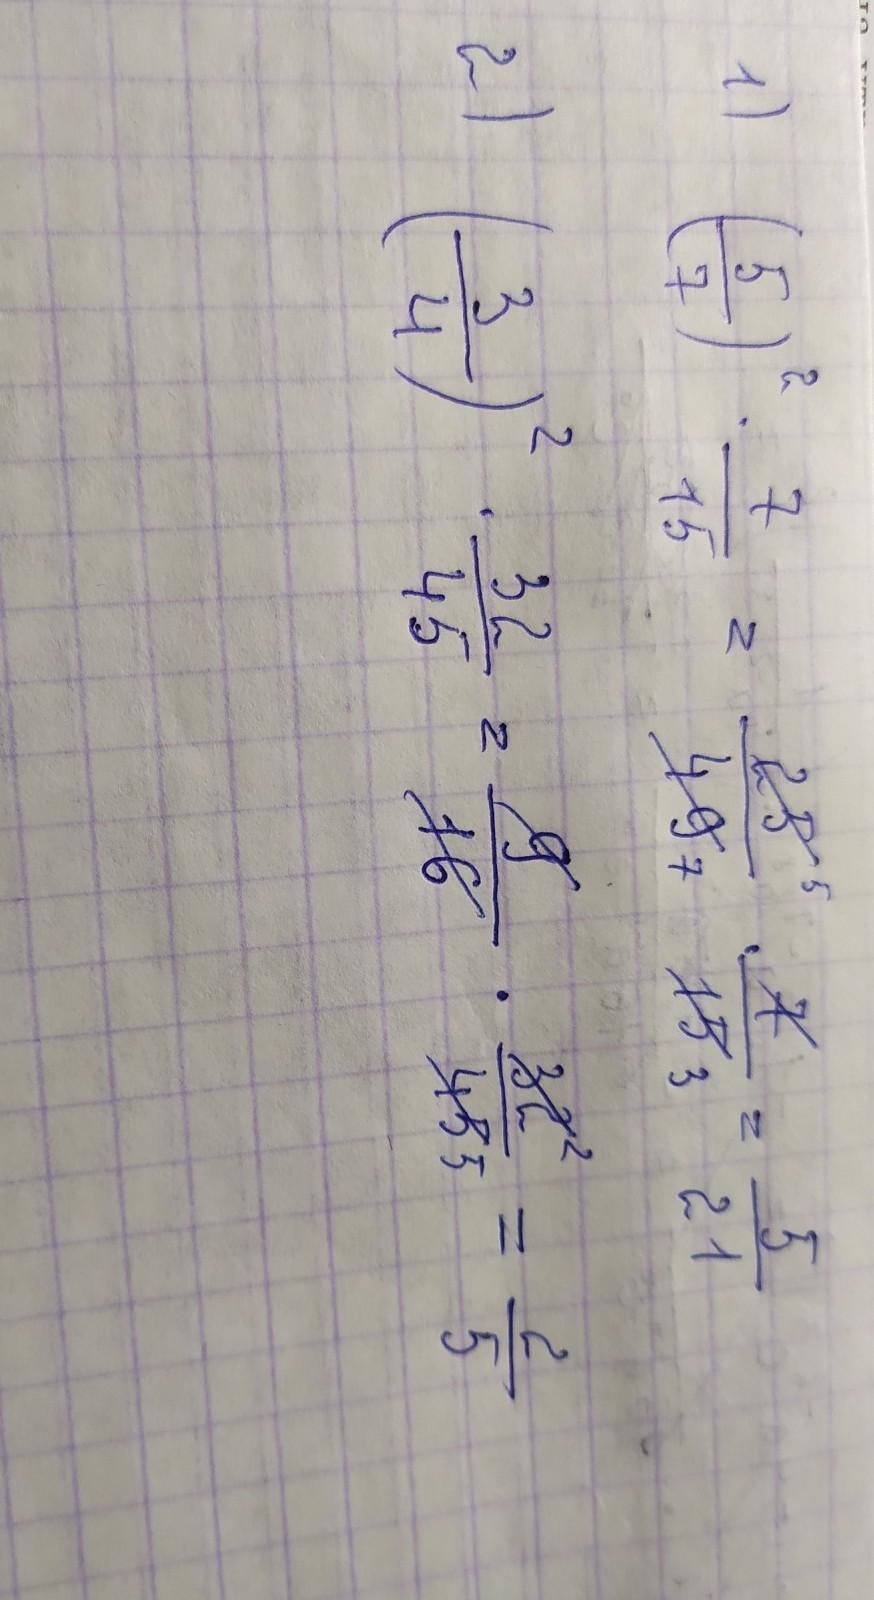 1) (5/7)² · 7/15 = 25⁵/49₇ · 7/15₃ = 5/21
2) (3/4)² · 32/45 = 9/16 · 32²/45₅ = 2/5